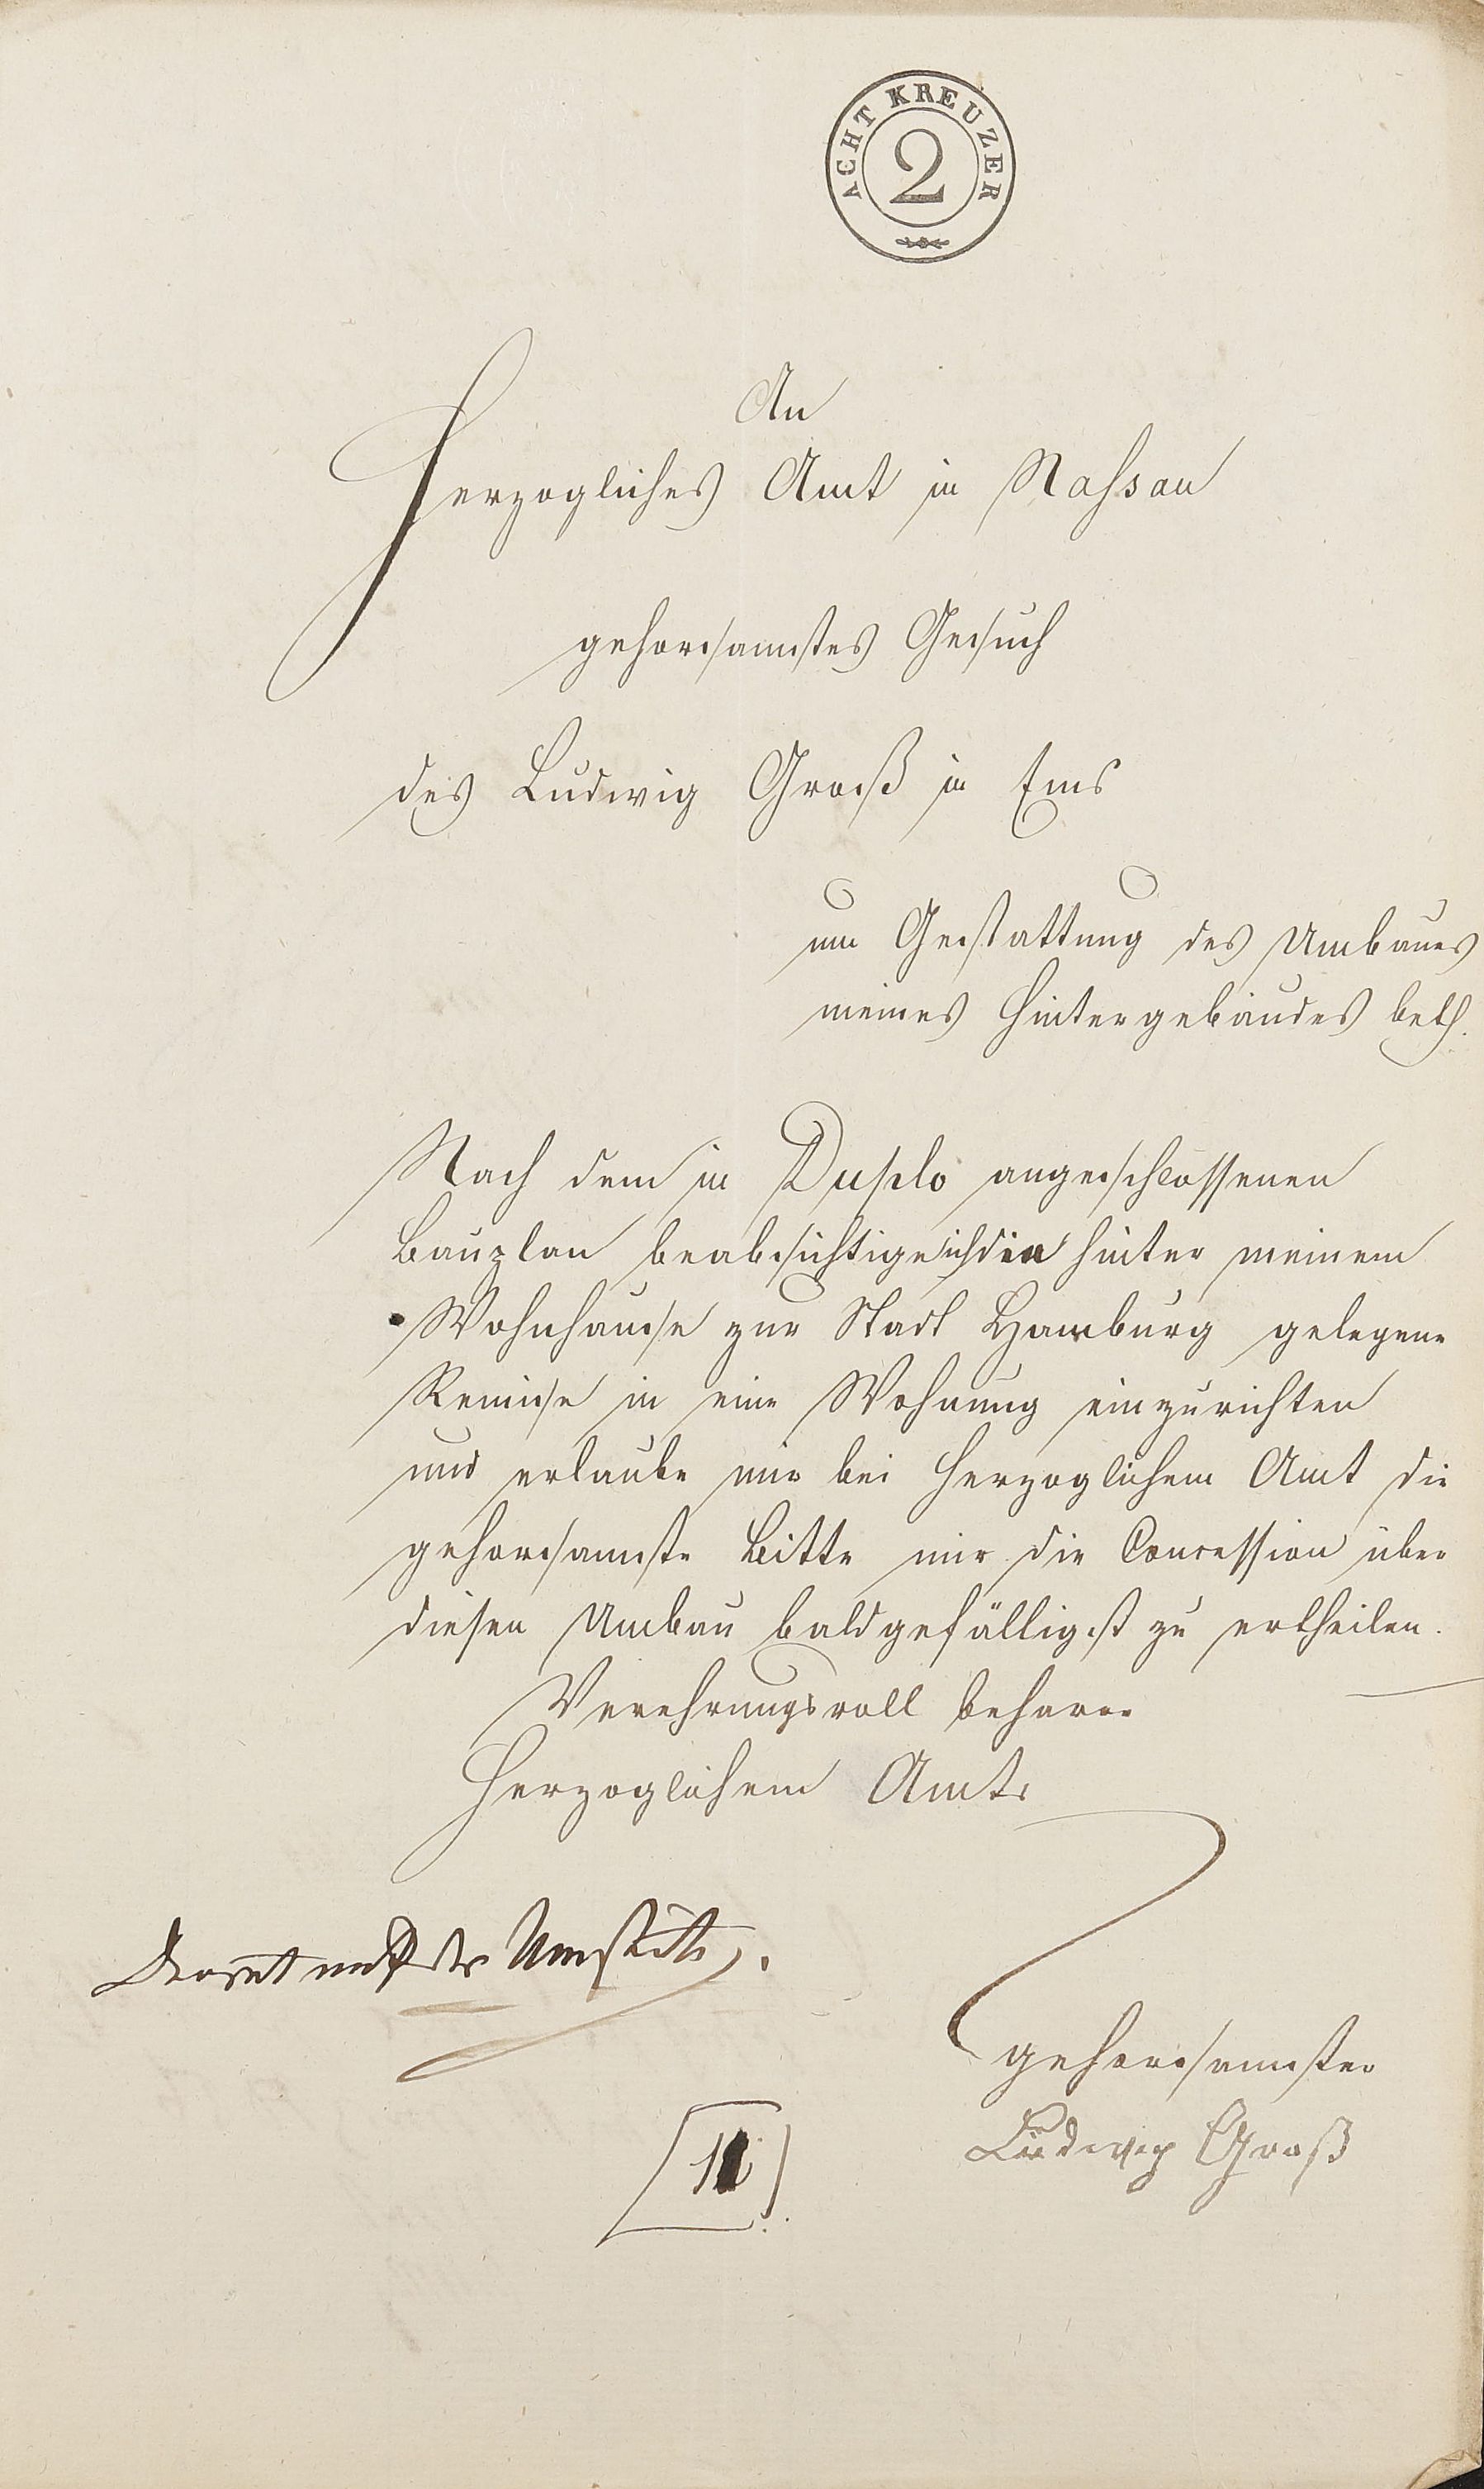 ACHT KREUZER
2
An
Herzogliches Amt in Nassau
gehorsamstes Gesuch
des Ludwig Groß in Ems
um Gestattung des Umbaues
meines Hintergebäudes betf.
Nach dem in Duplo angeschlossenen
Bauplan beabsichtige ich die hinter meinem
Wohnhause zur Stadt Hamburg gelegene
Remise in eine Wohnung einzurichten
und erlaube mir bei Herzoglichem Amt die
gehorsamste Bitte mir die Concession über
diesen Umbau baldgefälligst zu ertheilen.
Verehrungsvoll beharre
Herzoglichem Amte
gehorsamster
Ludwig Groß